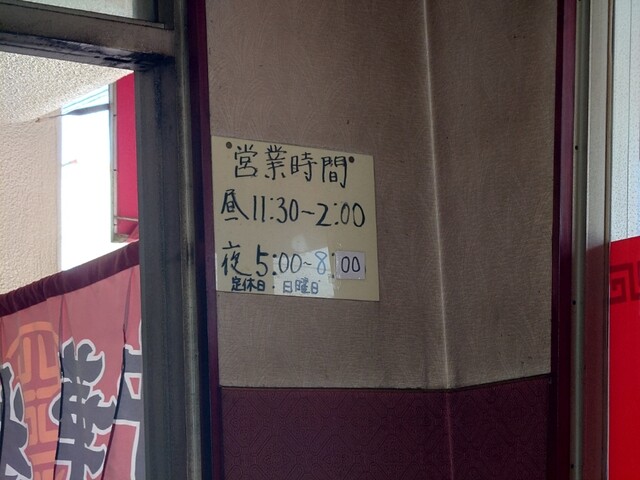 営業時間
昼11:30~2:00
夜5:00~8:00
定休日:日曜日